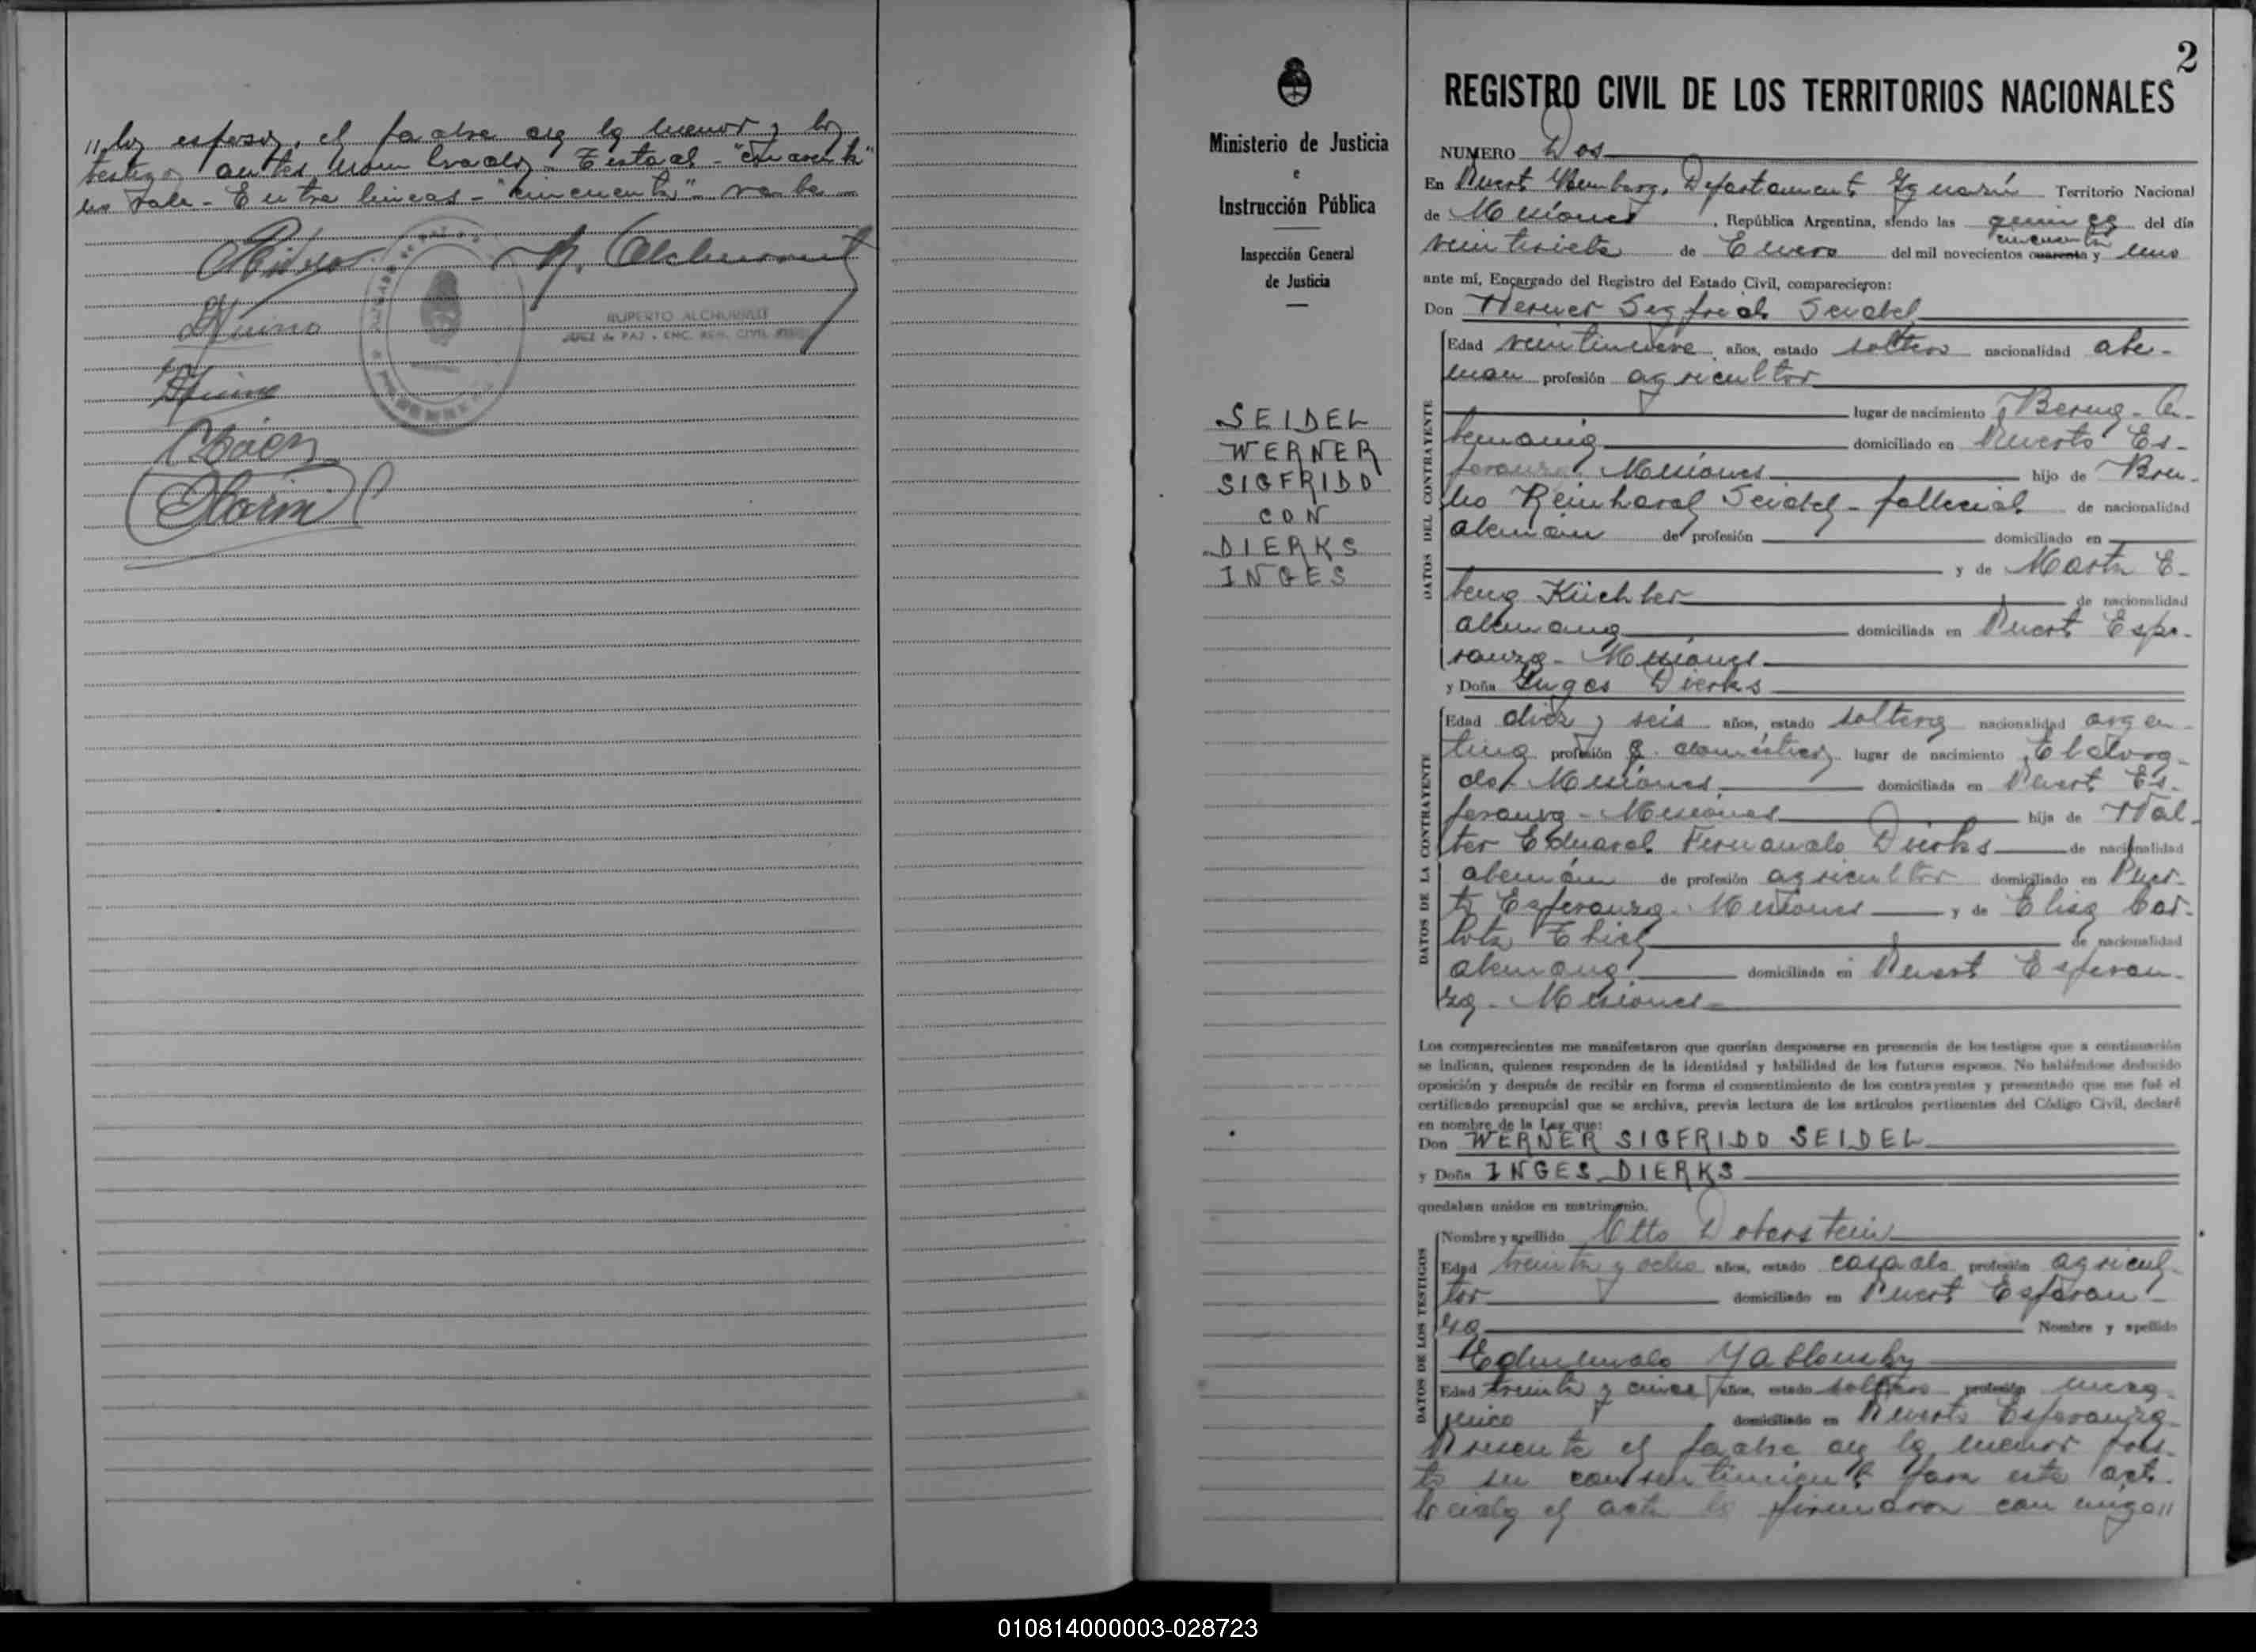 "los esposos, el padre de la menor y los
testigos antes nombrados - Testado - "cuarenta"
no vale - Entre lineas - "cincuenta" - vale
RUPERTO ALCHURRUT
JUEZ de PAZ - ENC. REG. CIVIL
Ministerio de Justicia
e
Instrucción Pública
Inspección General
de Justicia
SEIDEL
WERNER
SIGFRIDO
CON
DIERKS
INGES
2
REGISTRO CIVIL DE LOS TERRITORIOS NACIONALES
NUMERO Dos
En Puerto Bemberg, Departamento Iguazú Territorio Nacional
de Misiones, República Argentina, siendo las quince del día
cincuenta
veintisiete de Enero del mil novecientos cuarenta y uno
ante mí, Encargado del Registro del Estado Civil, comparecieron:
Don Werner Segfredo Seidel
DATOS DEL CONTRAYENTE
Edad veintinueve años, estado soltero nacionalidad ale-
man profesión agricultor
lugar de nacimiento A-
lemania domiciliado en Puerto Es-
peranza Misiones hijo de Bru-
no Reinhard Seidel - fallecido de nacionalidad
alemán de profesión domiciliado en
y de Marta E-
lena Küchler de nacionalidad
alemana domiciliada en Puerto Espe-
ranza - Misiones
y Doña Inges Dierks
DATOS DE LA CONTRAYENTE
Edad diez y seis años, estado soltera nacionalidad argen-
tina profesión q. domésticos lugar de nacimiento Eldora-
do, Misiones domiciliada en Puerto Es-
peranza - Misiones hija de Wal-
ter Eduard Fernando Dierks de nacionalidad
alemán de profesión agricultor domiciliado en Puer-
to Esperanza - Misiones y de Elisa Car-
lota de nacionalidad
alemana domiciliada en Puerto Esperan-
za - Misiones
Los comparecientes me manifestaron que querían desposarse en presencia de los testigos que a continuación
se indican, quienes responden de la identidad y habilidad de los futuros esposos. No habiéndose deducido
oposición y después de recibir en forma el consentimiento de los contrayentes y presentado que me fué el
certificado prenupcial que se archiva, previa lectura de los artículos pertinentes del Código Civil, declaré
en nombre de la Ley que:
Don WERNER SIGFRIDO SEIDEL
y Doña INGES DIERKS
quedaban unidos en matrimonio.
DATOS DE LOS TESTIGOS
Nombre y apellido Otto Doberstein
Edad treinta y ocho años, estado casado profesión agricul-
tor domiciliado en Puerto Esperan-
za Nombre y apellido
Edmundo Yablonsky
Edad treinta y cinco años, estado soltero profesión meca-
nico domiciliado en Puerto Esperanza
Presente el padre de la menor pres-
ta su consentimiento para este acto.
Leida el acta la firmaron conmigo"
010814000003-028723